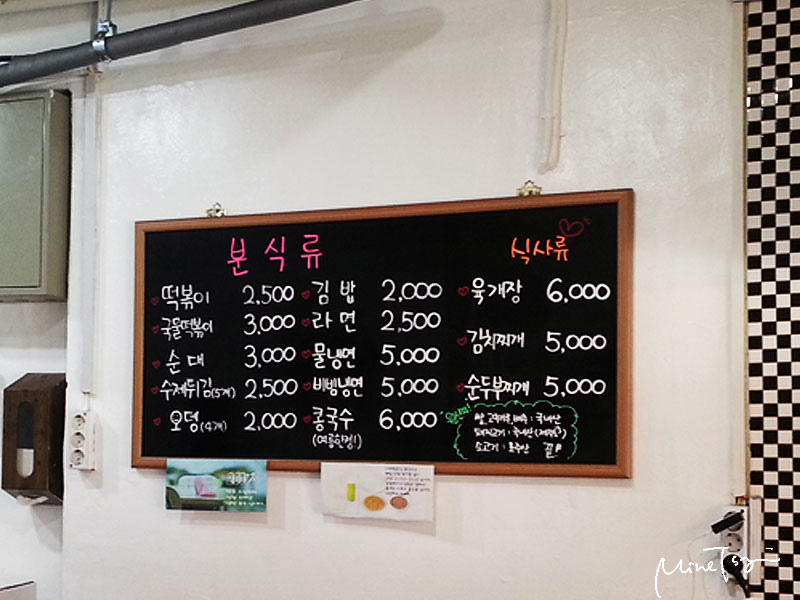 분식류
떡볶이 2,500
국물떡볶이 3,000
순대 3,000
수제튀김(5개) 2,500
오뎅(4개) 2,000
김밥 2,000
라면 2,500
물냉면 5,000
비빔냉면 5,000
콩국수 6,000
(여름한정!)
식사류
육개장 6,000
김치찌개 5,000
순두부찌개 5,000
원산지!
쌀, 고춧가루, 배추 : 국내산
돼지고기 : 국내산
소고기 : 호주산